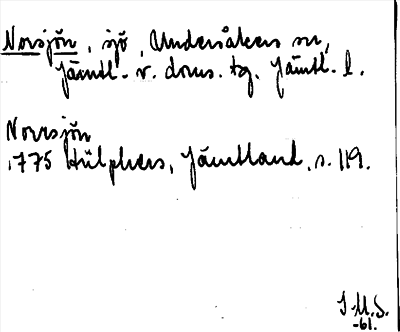 Norsjön, sjö, Undersåkers sn,
Jämtl. v. doms. tg. Jämtl. l.
Norrsjön
1775 Hülphers, Jämtland, s. 119.
I.M.S.
-61.